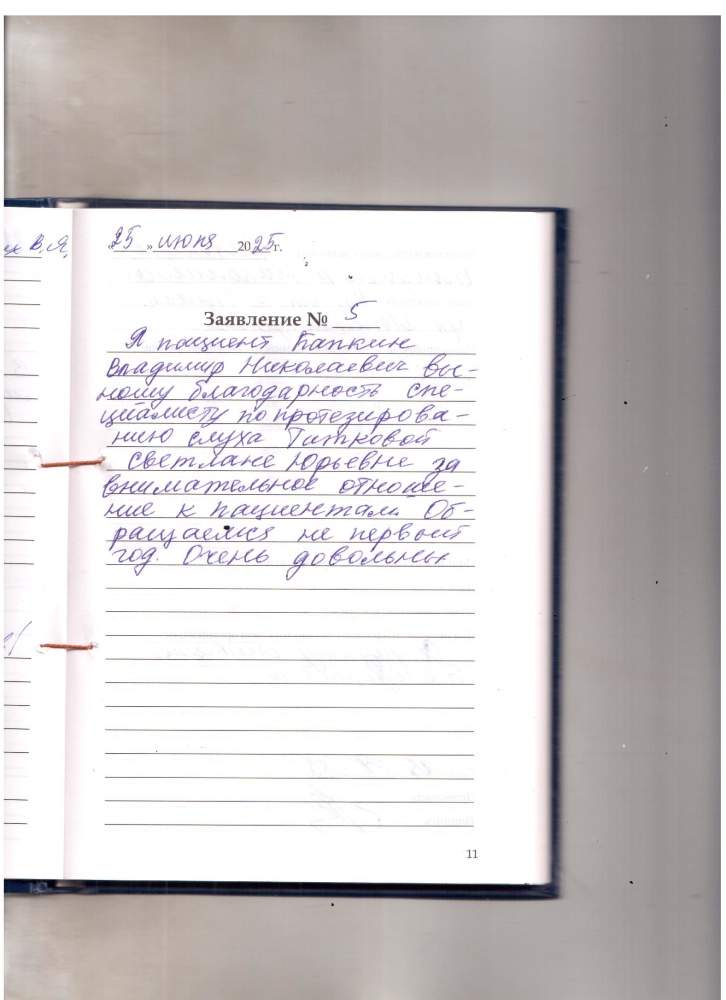 В.Я.
«25» июня 2025г.
Заявление № 5
Я пациент Капкин
Владимир Николаевич вы-
ношу благодарность спе-
циалисту по протезирова-
нию слуха Титковой
Светлане Юрьевне за
внимательное отноше-
ние к пациентам. Об-
ращаемся не первый
год. Очень довольны
11